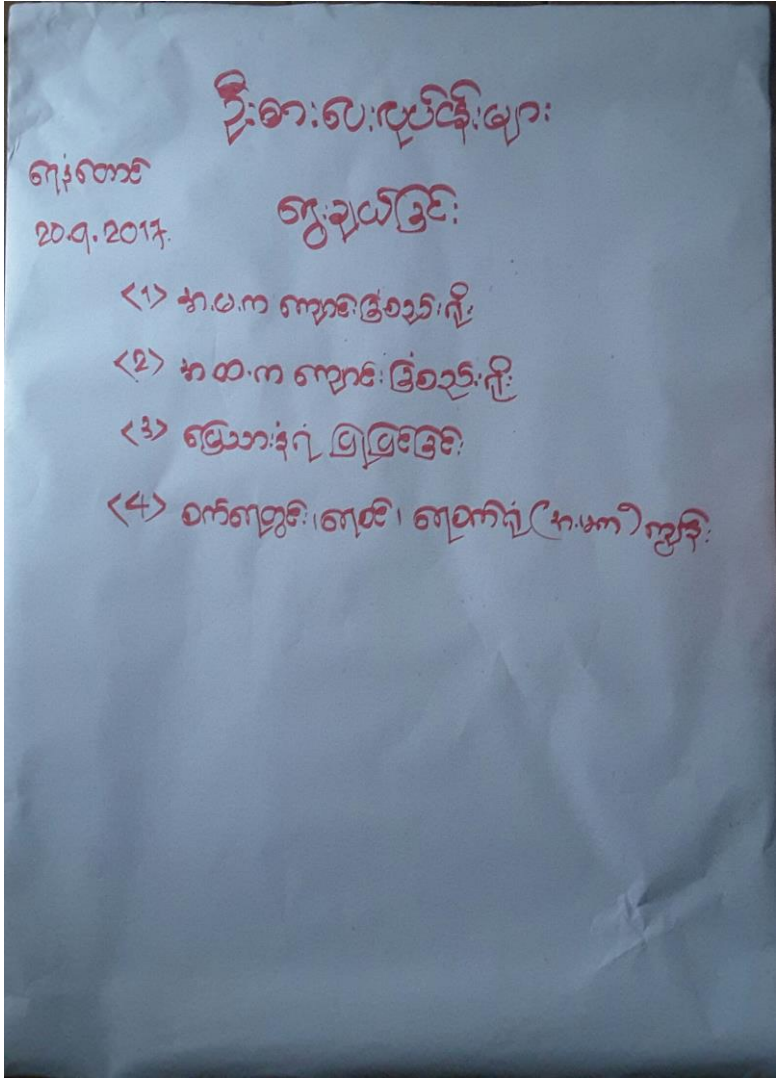 ဦးစားပေးလုပ်ငန်းများ
ရေနံတောင်
ရွေးချယ်ခြင်း
20.9.2017.
<1> အ.မ.က ကျောင်းခြံစည်းရိုး
<2> အ.ထ.က ကျောင်းခြံစည်းရိုး
<3> မြေသားနံရံ ပြုပြင်ခြင်း
<4> စက်ရေတွင်း၊ရေစင်၊ ရေစက်ရုံ (အ.မ.က) ကျွန်း